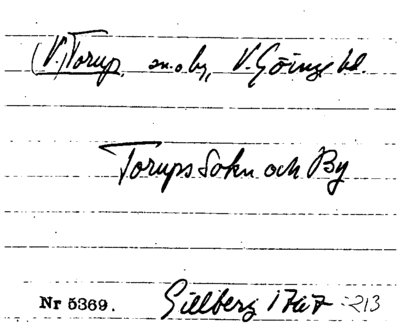 (V.) Torup sn. o by, V. Göinge hd.
Torups Sokn och By
Nr 5369. Gillberg 1767 : 213